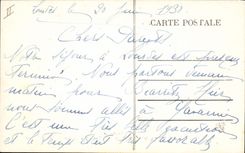 II
le 20 Juin 1930
CARTE POSTALE
Chers Parents
Notre séjour à est presque
terminé. Nous partons demain
matin pour Biarritz. Hier
nous sommes allés à
C'est une très belle
et le temps était très favorable